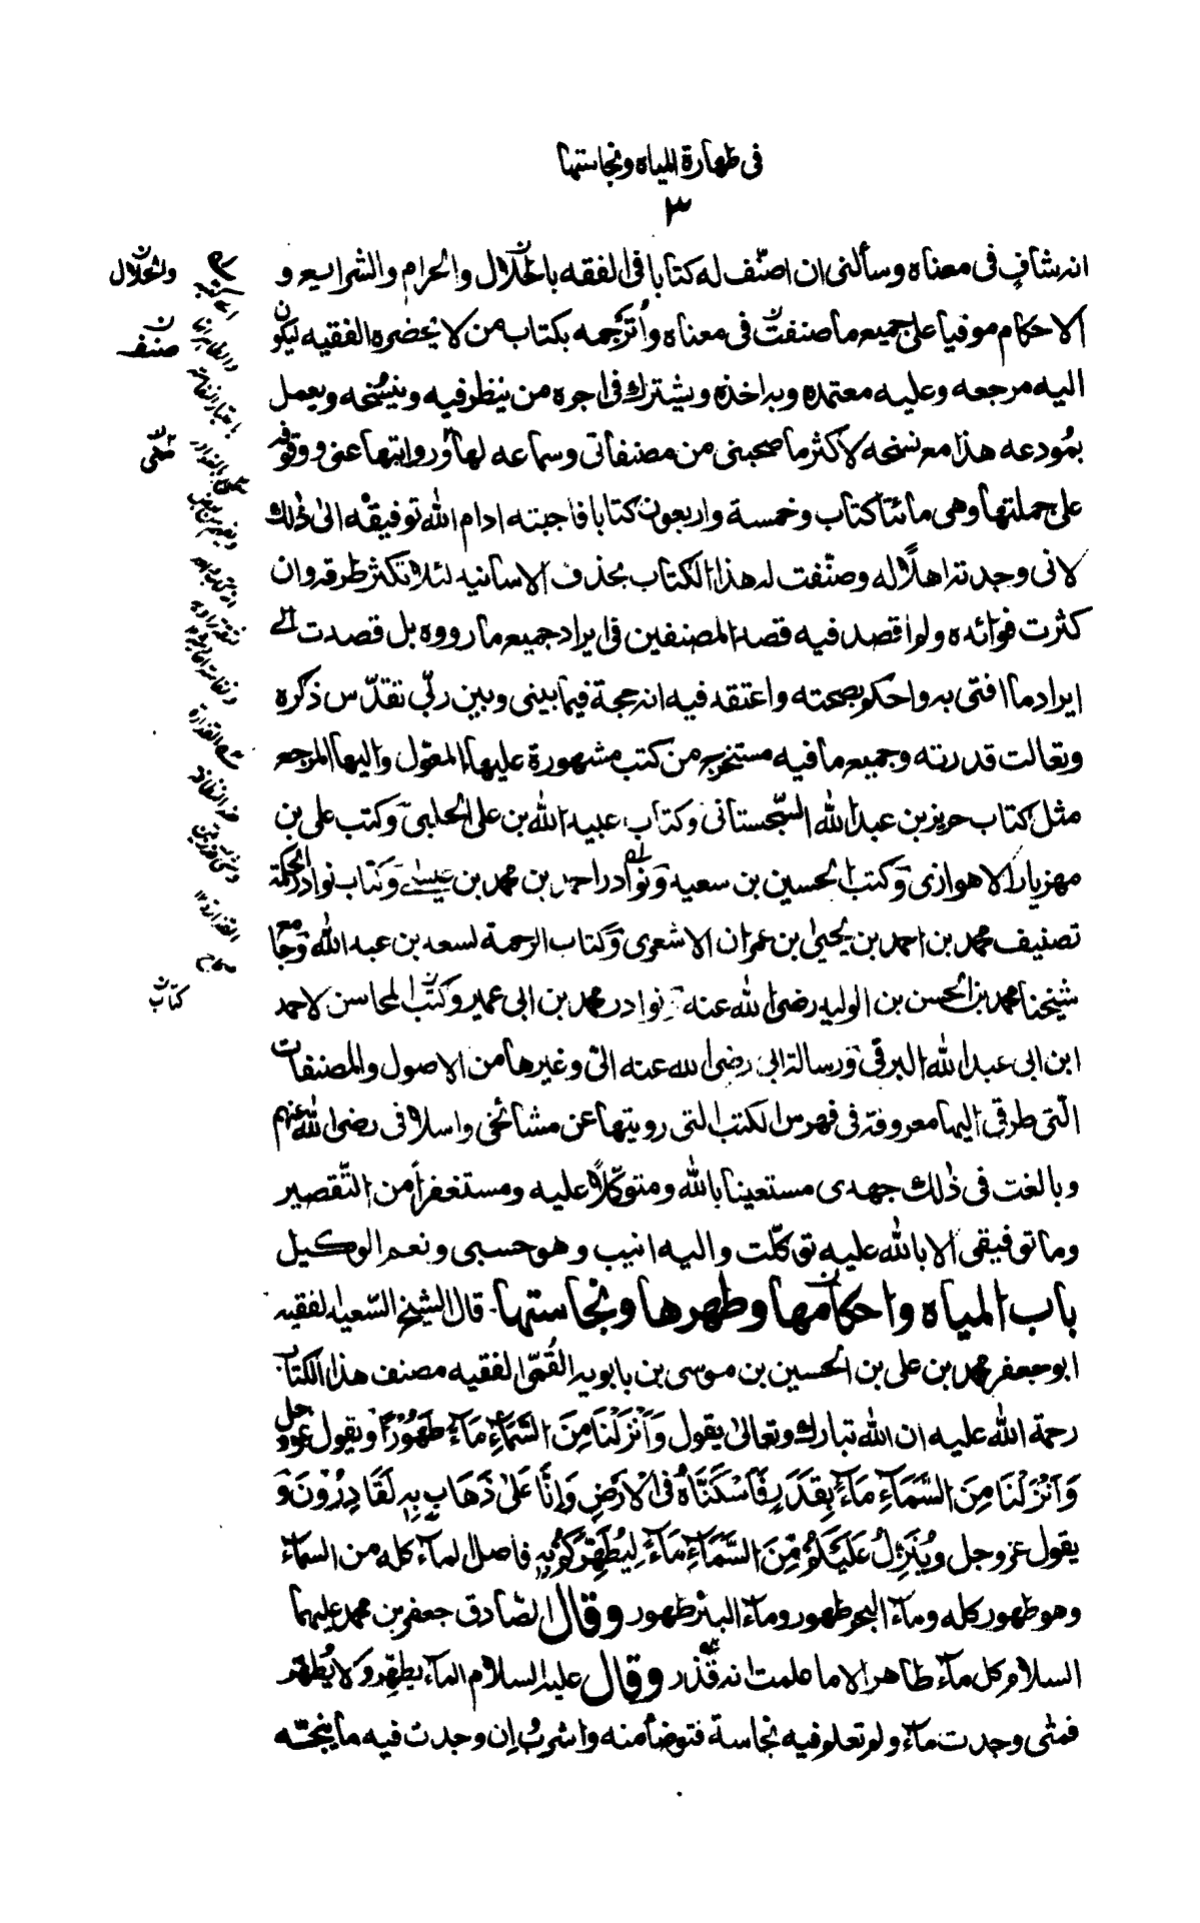 فى طهارة المياه ونجاستها
٣
انه شافٍ فى معناه وسألنى ان اصنّف له كتابا فى الفقه بالحلال والحرام والشرايع و
الاحكام موفيا على جميع ما صنفت فى معناه وأترجمه بكتاب من لا يحضره الفقيه ليكون
اليه مرجعه وعليه معتمده وبه اخذه ويشترك فى اجره من ينظر فيه وينسُخه ويعمل
بمُودعه هذا مع نسخه لاكثر ما صحبنى من مصنفاتى وسماعه لها وروايتها عنى ووقوفه
على جملتها وهى مائتا كتاب وخمسة واربعون كتابا فاجبته ادام الله توفيقه الى ذلك
لانى وجدته اهلاً له وصنّفت له هذا الكتاب بحذف الاسانيد لئلا تكثر طرقه وان
كثرت فوائده ولم اقصد فيه قصد المصنفين فى ايراد جميع ما رووه بل قصدت الى
ايراد ما افتى به واحكم بصحته واعتقد فيه انه حجة فيما بينى وبين ربّى تقدّس ذكره
وتعالت قدرته وجميع ما فيه مستخرج من كتب مشهورة عليها المعّول واليها المرجع
مثل كتاب حريز بن عبد الله السّجستانى وكتاب عبيد الله بن على الحلبى وكتب على بن
مهزيار الاهوازى وكتب الحسين بن سعيد ونوادر احمد بن محمد بن عيسى وكتاب نوادر الحكمة
تصنيف محمد بن احمد بن يحيى بن عمران الاشعرى وكتاب الرحمة لسعد بن عبد الله وجامع
شيخنا محمد بن الحسن بن الوليد رضى الله عنه نوادر محمد بن ابى عمير وكتب المحاسن لاحمد
ابن ابى عبد الله البرقى ورسالة ابى رضى الله عنه الىّ وغيرها من الاصول والمصنفات
الّتى طرقى اليها معروفة فى فهرس الكتب التى رويتها عن مشائخى واسلافى رضى الله عنهم
وبالغت فى ذلك جهدى مستعينا بالله ومتوكّلاً عليه ومستغفراً من التّقصير
وما توفيقى الا بالله عليه توكّلت واليه انيب وهو حسبى ونعم الوكيل
باب المياه واحكامها وطهرها ونجاستها قال الشيخ السّعيد الفقيه
ابو جعفر محمد بن على بن الحسين بن موسى بن بابويه القُمّى الفقيه مصنف هذا الكتاب
رحمة الله عليه ان الله تبارك وتعالى يقول وَاَنْزَلْنَا مِنَ السَّمَآءِ مَآءً طَهُوْرًا ويقول عز وجل
وَاَنْزَلنَا مِنَ السَّمَآءِ مَآءً بِقَدَرٍ فَاَسْكَنَّاهُ فى الْاَرْضِ وَاِنَّا عَلىٰ ذَهَابٍ بِهٖ لَقَادِرُوْنَ و
يقول عز وجل ويُنَزِّلُ عَلَيْكُمْ مِّنَ السَّمَآءِ مَآءً لِيُطَهِّرَكُمْ بِهٖ فاصل الماء كله من السماء
وهو طهور كله وماء البحر طهور وماء البئر طهور وقال الصّادق جعفر بن محمد عليهما
السلام كل ماء طاهر الا ما علمت انه قذر وقال عليه السلام الماء يطهّر ولا يُطهّر
فمتى وجدت ماء ولم تعلم فيه نجاسة فتوضأ منه واشرب اِن وجدت فيه ما ينجّسه
والحلال
صنف
كتاب